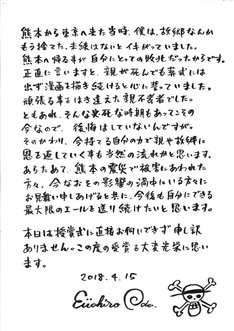 熊本から東京へ来た当時、僕は、故郷なんか
もう捨てた、未練はないとイキがっていました。
熊本へ帰る事が自分にとっての敗北だったからです。
正直に言いますと、親が死んでも葬式には
出ず漫画を描き続けると心に誓っていました。
頑張る事とはき違えた親不孝者でした。
ともあれ、そんな必死な時期もあってこその
今なので、後悔はしていないんですが。
そのかわり、今持てる自分の力で親や故郷に
恩を返していく事も当然の流れかと思います。
あらためて、熊本の震災で被害にあわれた
方々、今なおその影響の渦中にいる方々に
お見舞い申しあげると共に、今後も自分にできる
最大限のエールを送り続けたいと思います。
本日は授賞式に直接お伺いできず申し訳
ありません。この度の受賞を大変光栄に思い
ます。
2018.4.15
Eiichiro Oda.